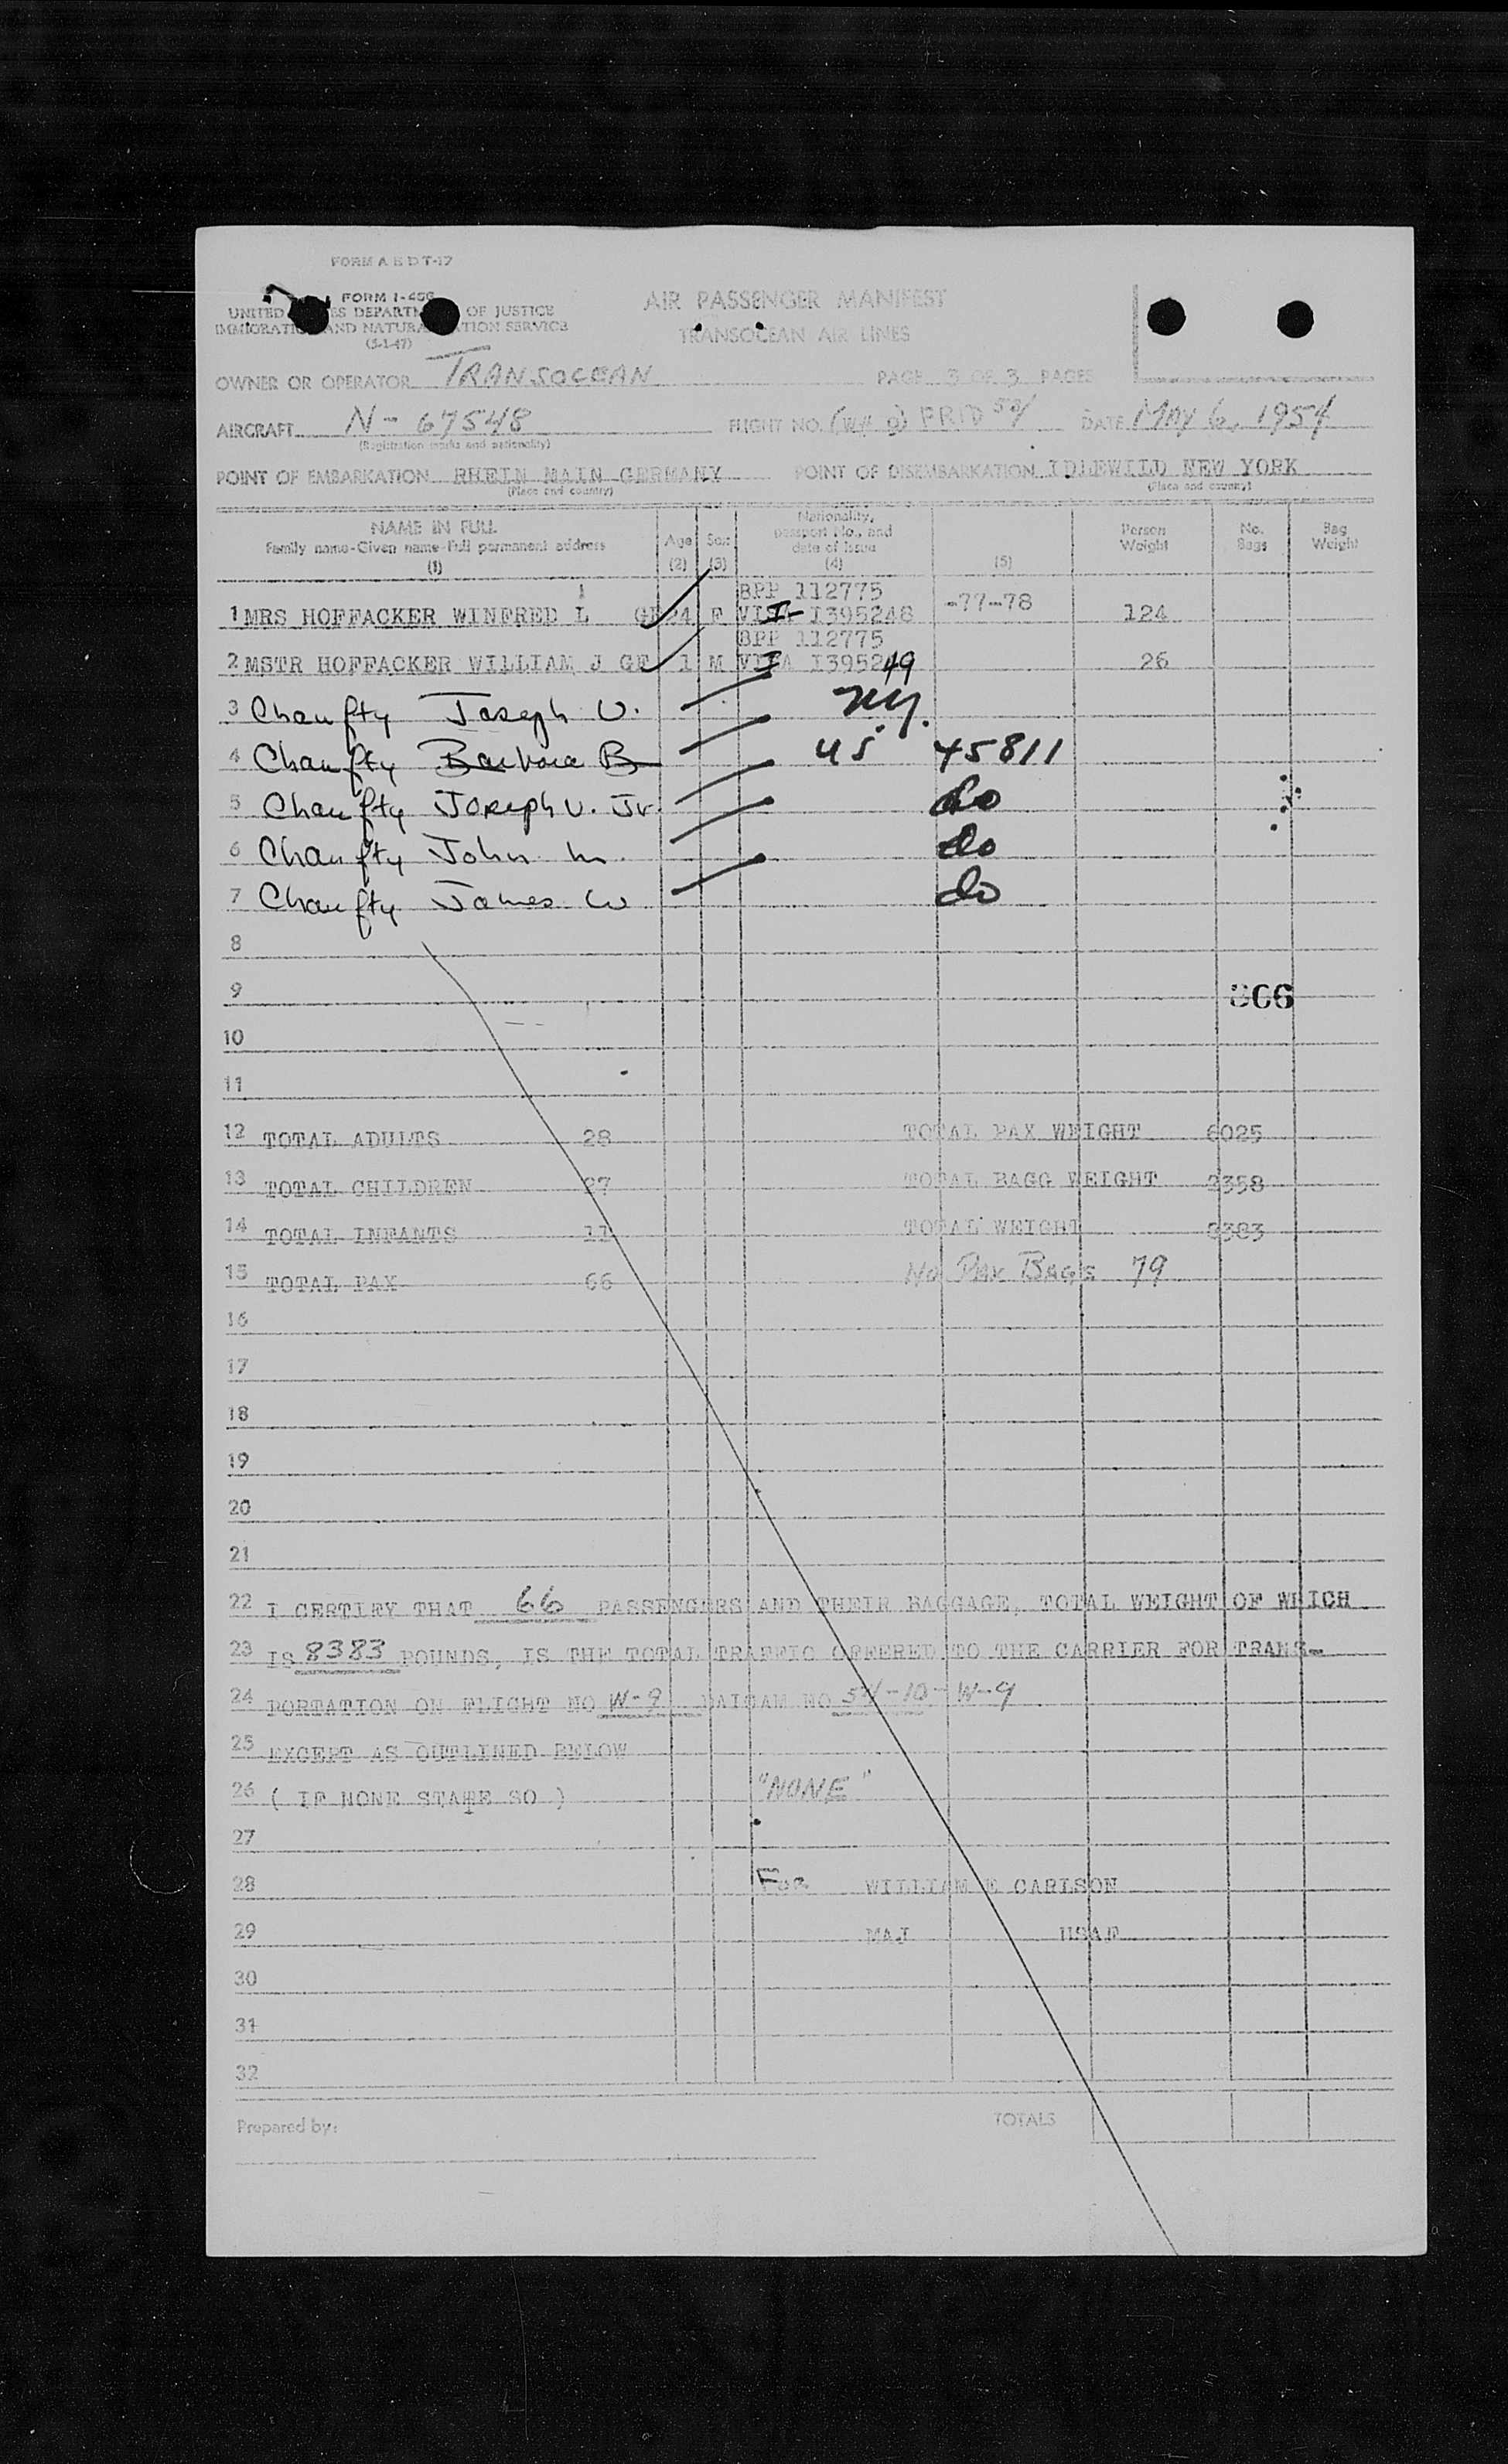 FORM A E D T-17
FORM I-456
UNITED ES DEPARTM OF JUSTICE
IMMIGRATI AND NATURA TION SERVICE
(5-1-47)
AIR PASSENGER MANIFEST
TRANSOCEAN AIR LINES
OWNER OR OPERATOR TRANSOCEAN PAGE 3 OF 3 PAGES
AIRCRAFT N-67548 FLIGHT NO. DATE May 6, 1954
(Registration marks and nationality)
POINT OF EMBARKATION RHEIN MAIN GERMANY POINT OF DISEMBARKATION IDLEWILD NEW YORK
(Place and country) (Place and country)
NAME IN FULL
Family name-Given name-Full permanent address
(1)
Age
(2)
Sex
(3)
Nationality,
passport No., and
date of issue
(4)
(5)
Person
Weight
No.
Bags
Bag
Weight
BPP 112775
1 MRS HOFFACKER WINFRED L 24 F VISA I395248 -77-78 124
BPP 112775
2 MSTR HOFFACKER WILLIAM J GE 1 M VISA I395249 26
3 Chaufty Joseph V.
4 Chaufty Barbara B US 45811
5 Chaufty Joseph V. Jr. do
6 Chaufty John M. do
7 Chaufty James W do
8
9 366
10
11
12 TOTAL ADULTS 28 TOTAL PAX WEIGHT 6025
13 TOTAL CHILDREN 27 TOTAL BAGG WEIGHT 2358
14 TOTAL INFANTS 11 TOTAL WEIGHT 8383
15 TOTAL PAX 66 No Pax Bags 79
16
17
18
19
20
21
22 I CERTIFY THAT 66 PASSENGERS AND THEIR BAGGAGE, TOTAL WEIGHT OF WHICH
23 IS 8383 POUNDS, IS THE TOTAL TRAFFIC OFFERED TO THE CARRIER FOR TRANS-
24 PORTATION ON FLIGHT NO W-9 NO 54-10-W-9
25 EXCEPT AS OUTLINED BELOW
26 ( IF NONE STATE SO ) "NONE"
27
28 For WILLIAM E CARLSON
29 MAJ USAF
30
31
32
Prepared by: TOTALS